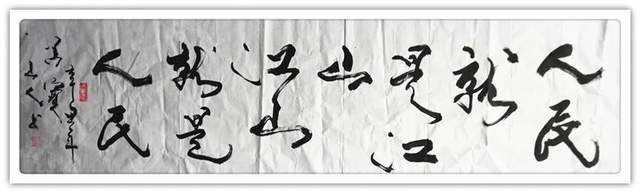 人民
就
是江
山
江山
就是
人民
辛丑年